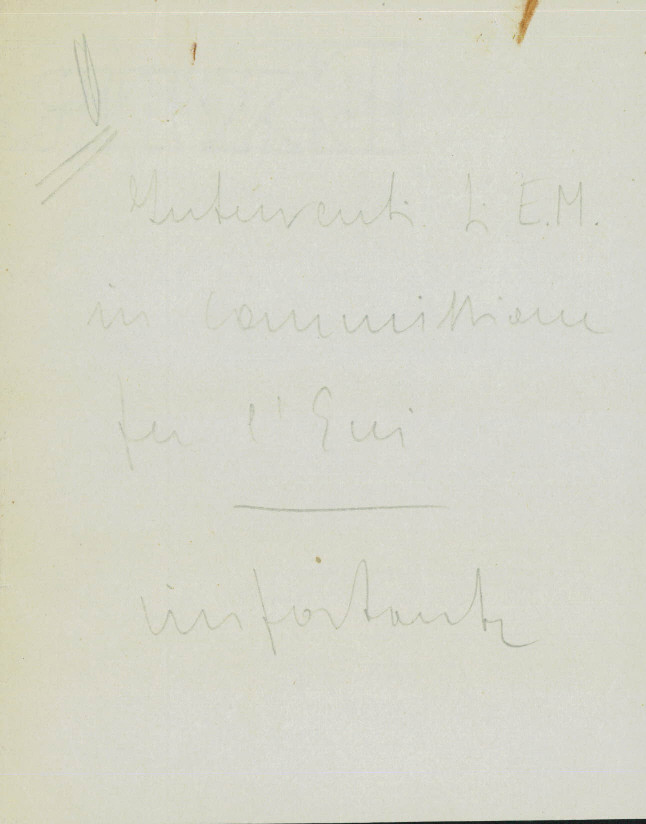 Interventi di E.M.
in commissione
per l'Eni
importante